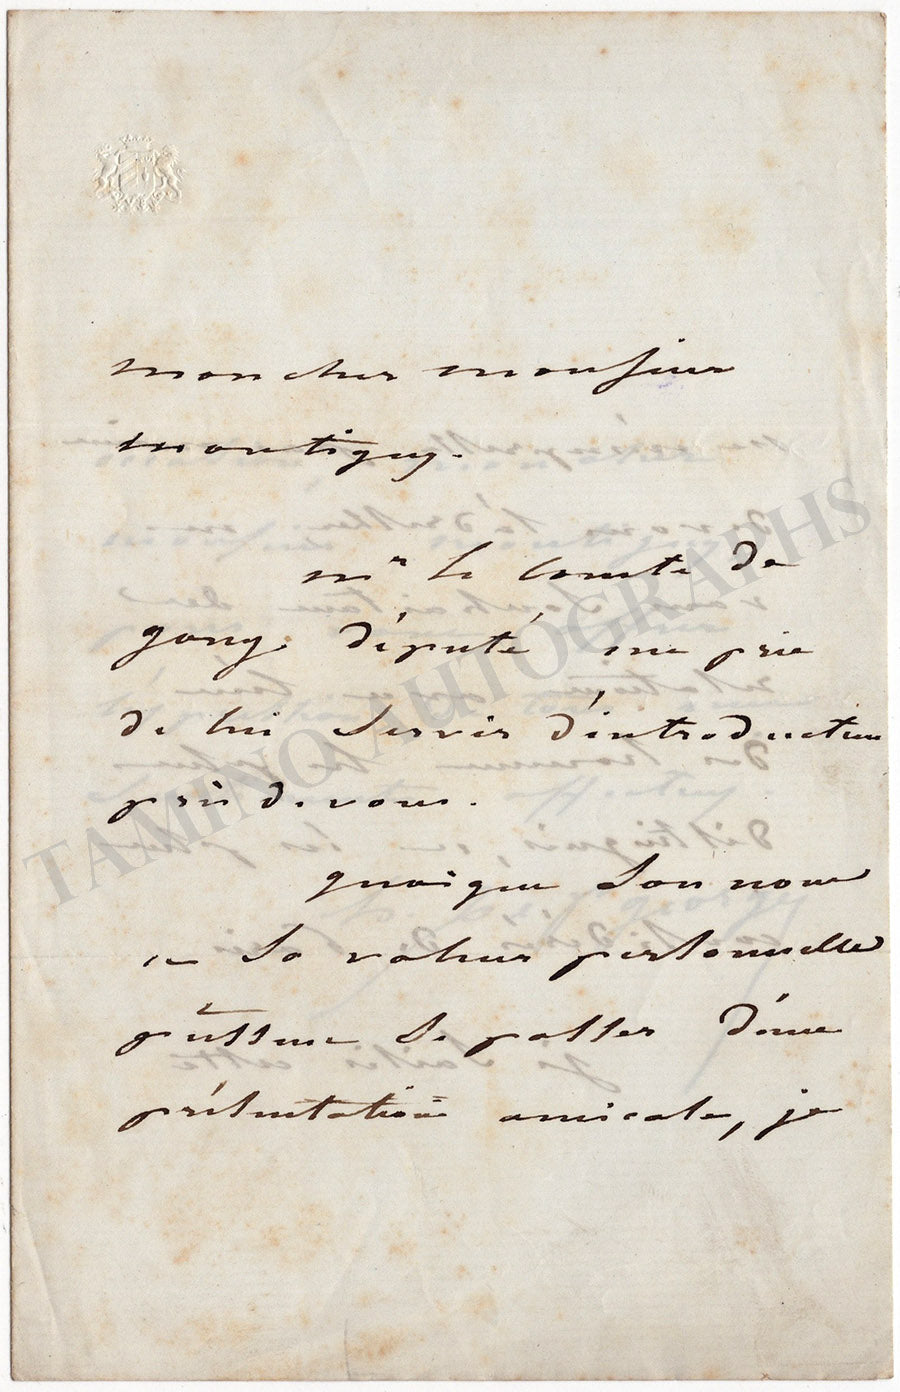 mon cher monsieur
montigny.
mr le Comte de
gony député me prie
de lui Servir d'introduction
près de vous.
quoique Son nom
et Sa valeur personnelle
pûssent Se passer d'une
présentation amicale, je
TAMINO AUTOGRAPHS